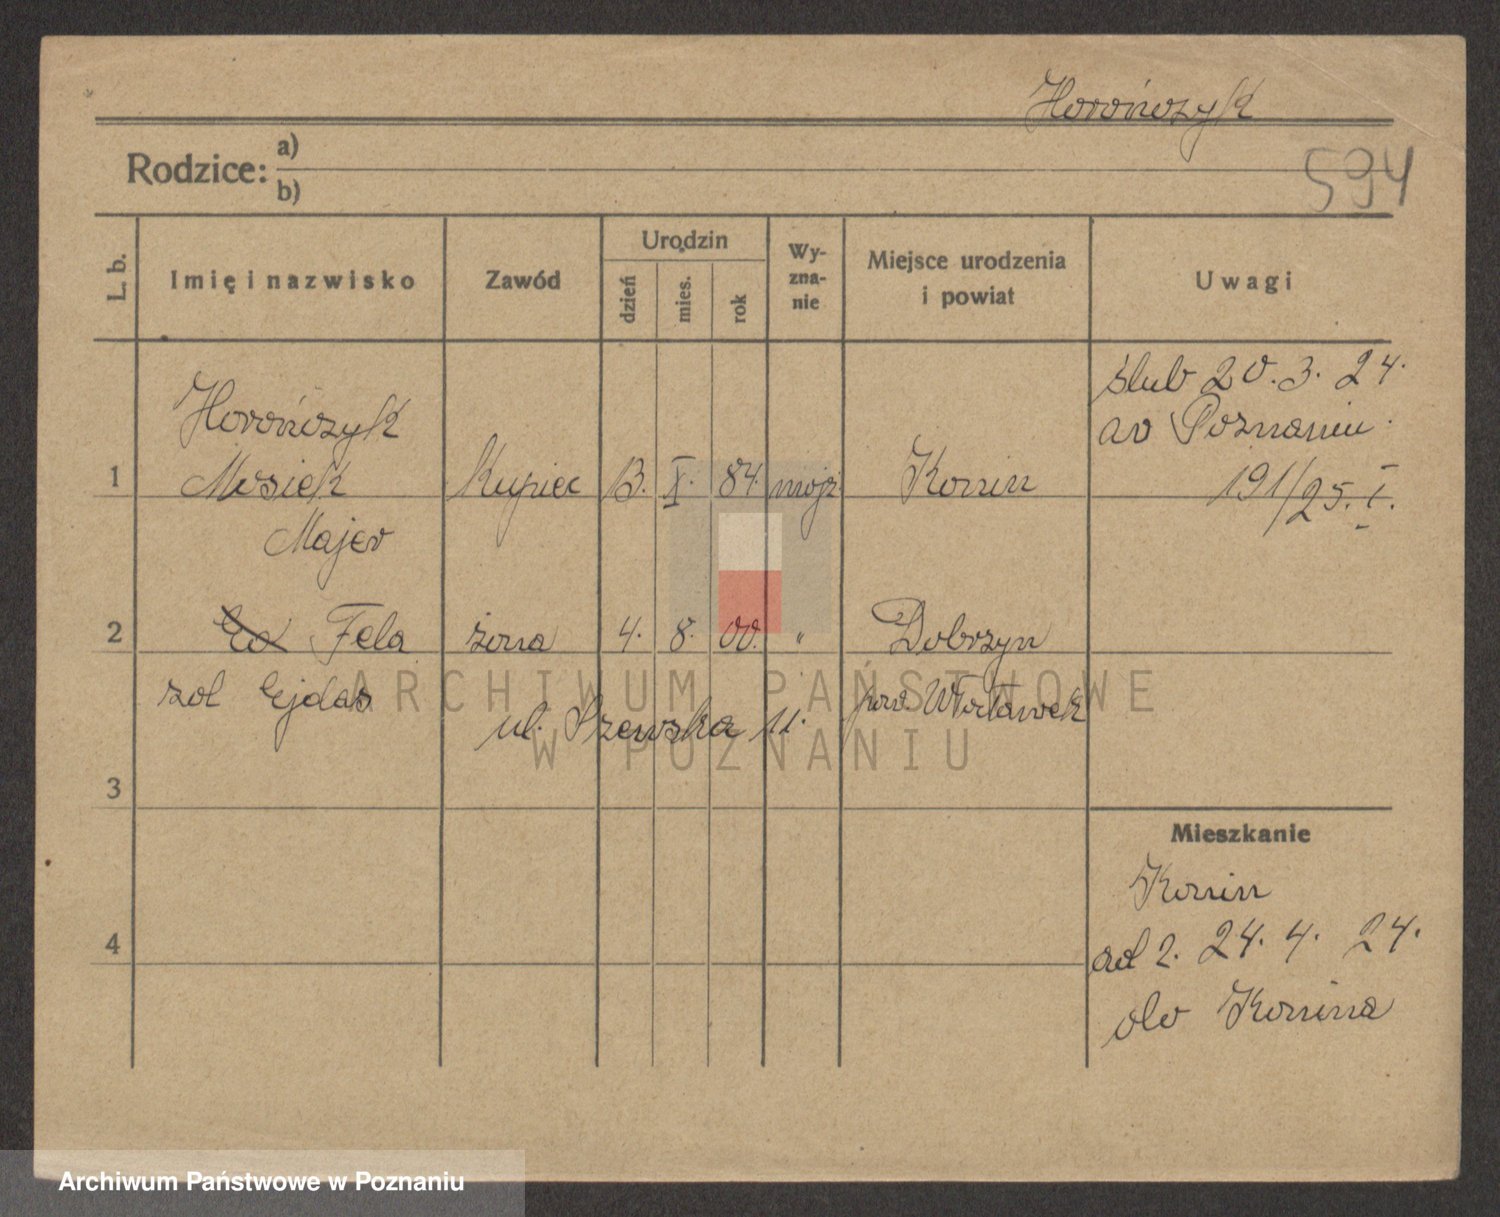 Horończyk
594
Rodzice: a)
b)
L. b.
Imię i nazwisko
Zawód
Urodzin
dzień
mies.
rok
Wy-
zna-
nie
Miejsce urodzenia
i powiat
Uwagi
ślub 20. 3. 24.
w Poznaniu.
191/25. I.
1
Horończyk
Mosiek
Majer
Kupiec
13.
X.
84.
mojż.
Konin
2
Fela
zol Ejdas
żona
4.
8.
00.
"
Dobrzyn
pow. Włocławek
ul. Szewska 11.
3
4
Mieszkanie
Konin
ad 2. 24. 4. 24.
do Konina
ARCHIWUM PAŃSTWOWE
W POZNANIU
Archiwum Państwowe w Poznaniu